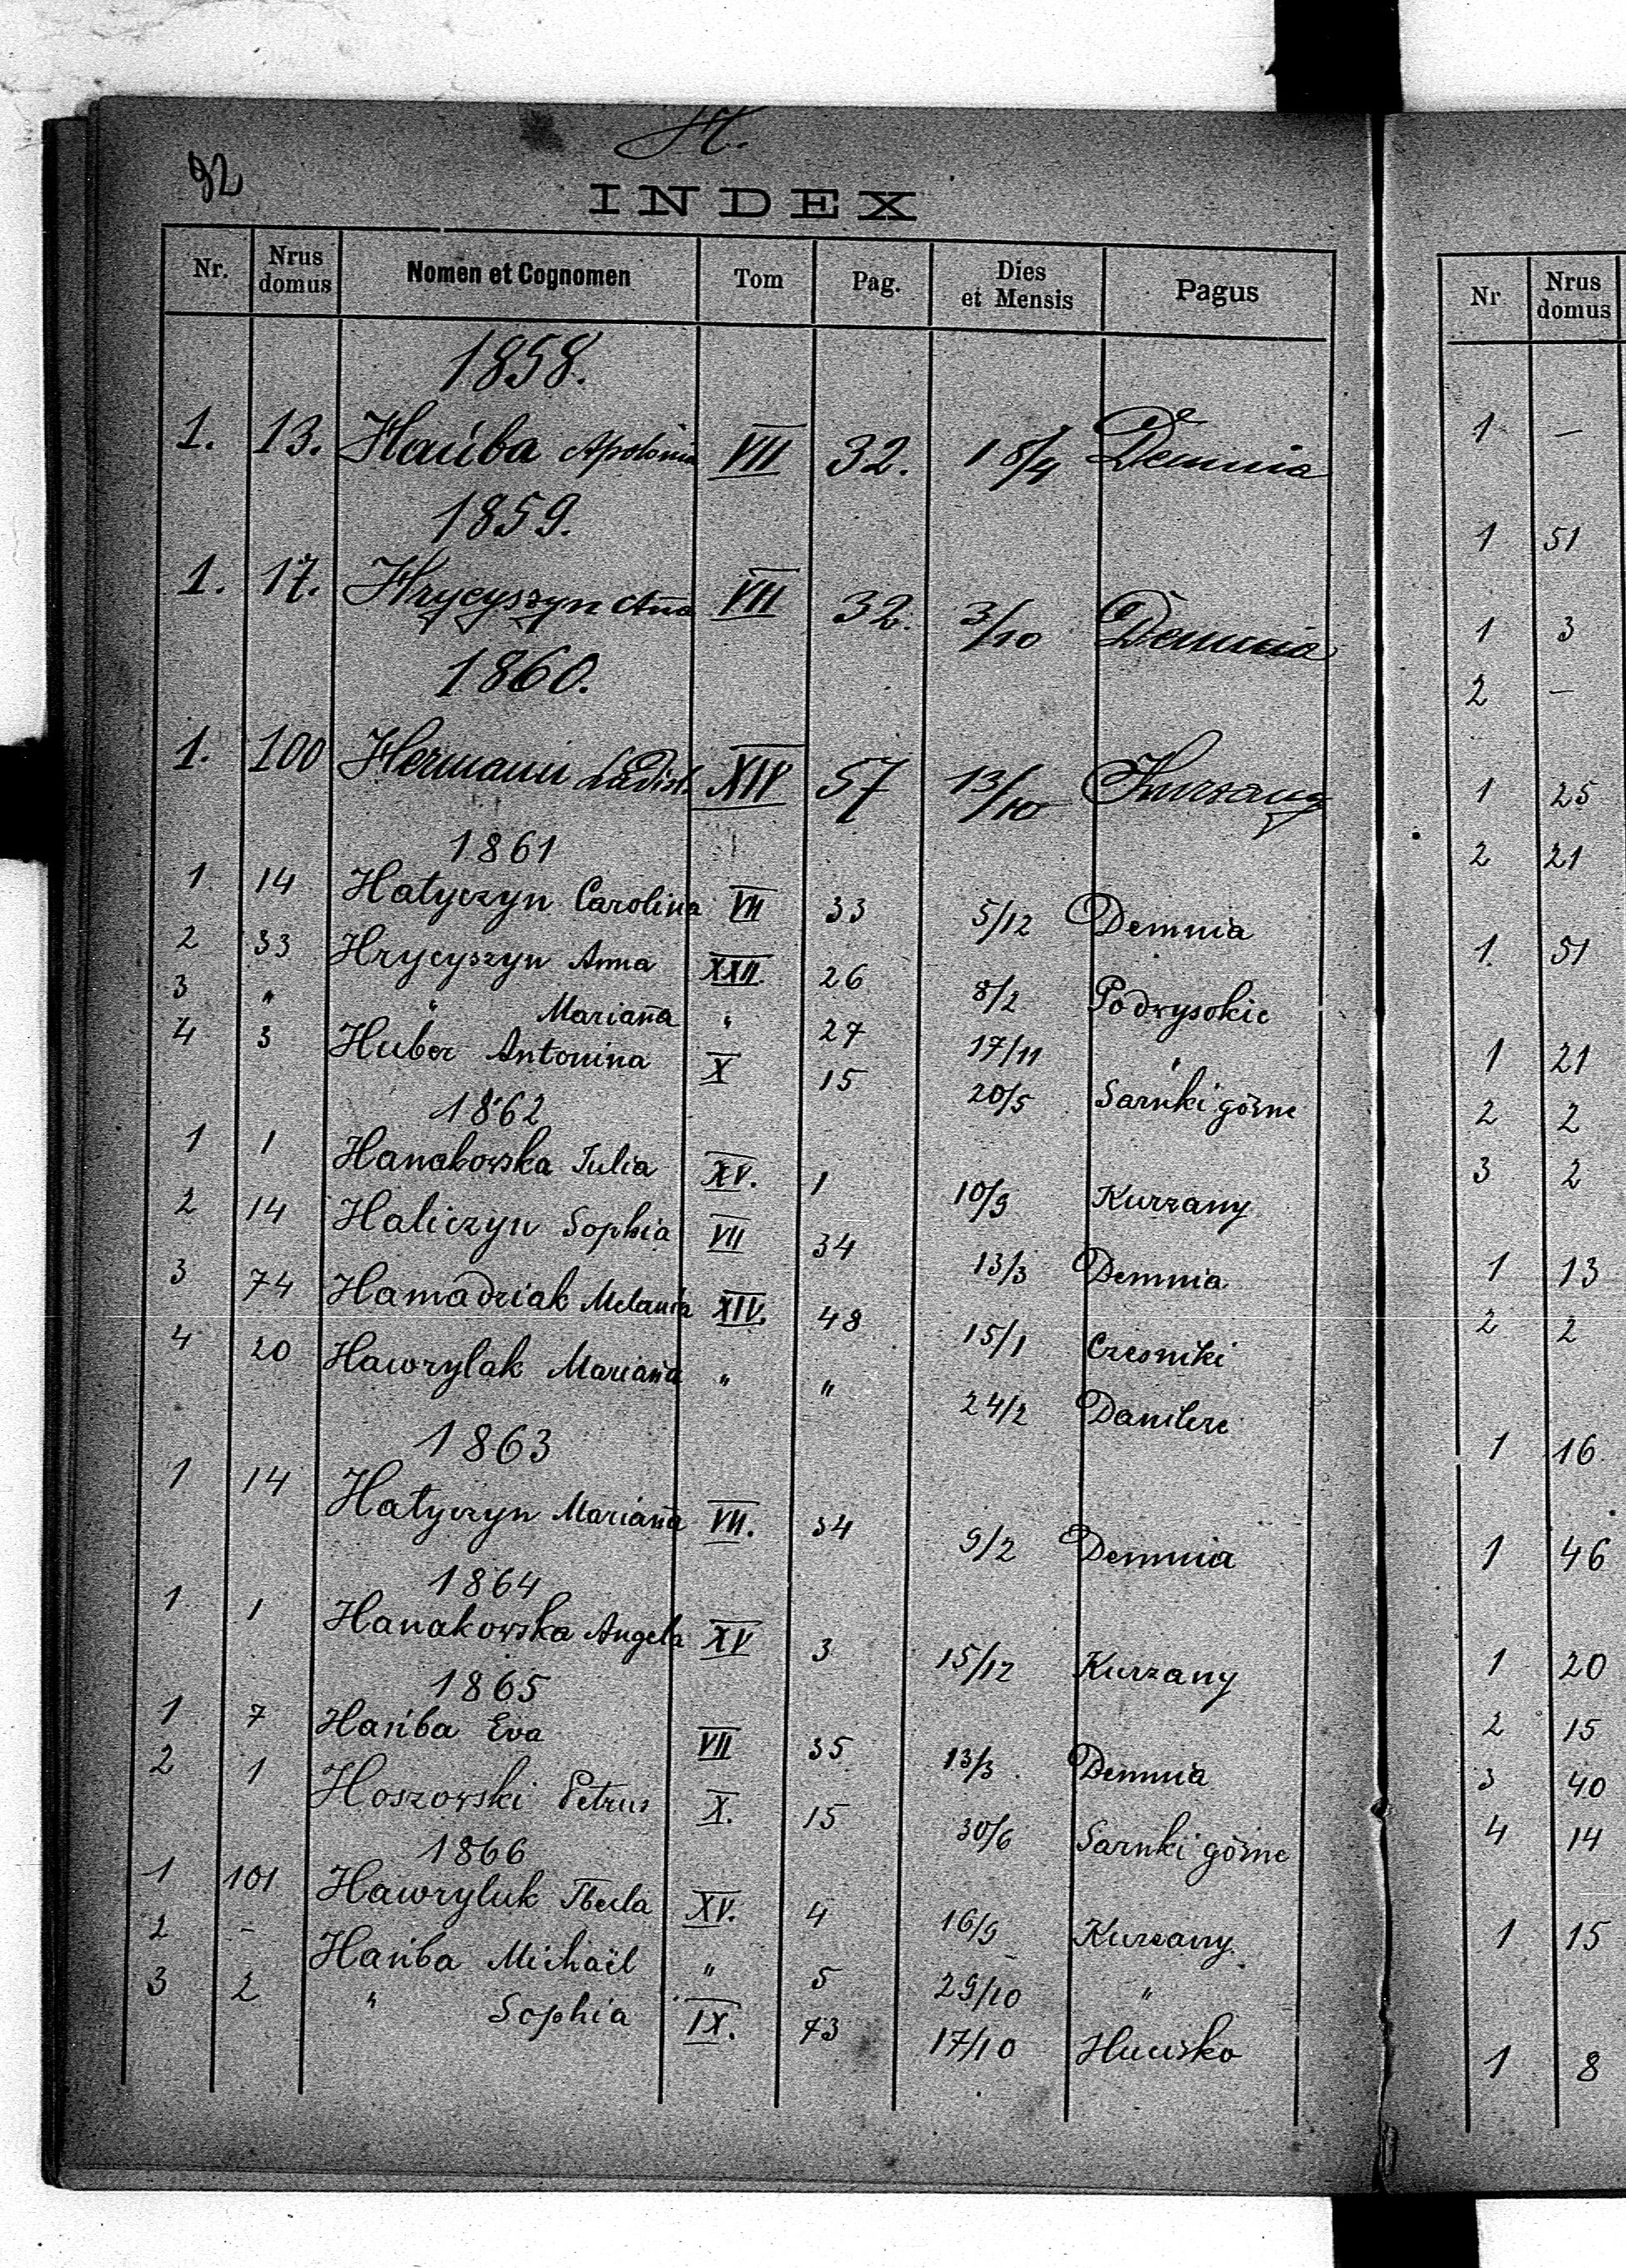 H.
92
INDEX
Nr. Nrus domus Nomen et Cognomen Tom Pag. Dies et Mensis Pagus
1858.
1. 13. Hańba Apolonia VII 32. 18/4 Demnia
1859.
1. 17. Hrycyszyn Ana VII 32. 3/10 Demnia
1860.
1. 100 Hermann Ladisl. XIV 57 13/10 Kurzany
1861
1 14 Hatyczyn Carolina VII 33 5/12 Demnia
2 33 Hrycyszyn Anna XXII. 26 8/2 Podwysokie
3 " " Mariana " 27 17/11 "
4 3 Huber Antonina X 15 20/5 Sarnki górne
1862
1 1 Hanakowska Julia XV. 1 10/9 Kurzany
2 14 Haliczyn Sophia VII 34 13/3 Demnia
3 74 Hamadziak Melania XIV. 48 15/1 Czesniki
4 20 Hawrylak Mariana " " 24/2 Danilcze
1863
1 14 Hatyczyn Mariana VII. 34 9/2 Demnia
1864
1 1 Hanakowska Angela XV 3 15/12 Kurzany
1865
1 7 Hańba Eva VII 35 13/3 Demnia
2 1 Hoszowski Petrus X. 15 30/6 Sarnki górne
1866
1 101 Hawryluk Thecla XV. 4 16/9 Kurzany
2 - Hańba Michaël " 5 29/10 "
3 2 " Sophia IX. 73 17/10 Hucisko
Nr Nrus domus
1 —
1 51
1 3
2 —
1 25
2 21
1 51
1 21
2 2
3 2
1 13
2 2
1 16
1 46
1 20
2 15
3 40
4 14
1 15
1 8